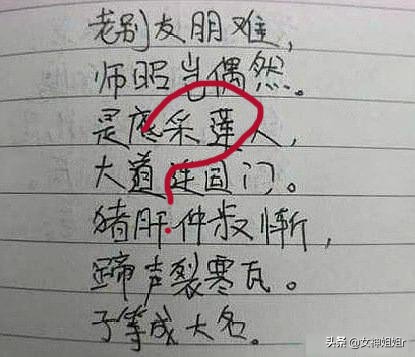 老别友朋难，
师昭岂偶然。
是底采莲人，
大道连国门。
猪肝仲叔惭，
蹄声裂寒瓦。
予等成大名。
头条 @女神姐姐r